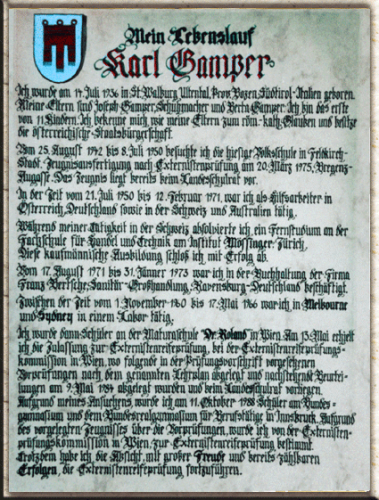 Mein Lebenslauf
Karl Gamper
Ich wurde am 14. Juli 1936 in St. Walburg, Ultental, Prov. Bozen, Südtirol-Italien geboren.
Meine Eltern sind Joseph Gamper, Schuhmacher und Berta Gamper. Ich bin das erste
von 11 Kindern. Ich bekenne mich, wie meine Eltern zum röm.-kath. Glauben und besitze
die österreichische Staatsbürgerschaft.
Vom 25. August 1942 bis 8. Juli 1950 besuchte ich die hiesige Volksschule in Feldkirch-
Stadt. Zeugnisausfertigung nach Externistenprüfung am 20. März 1975, Bregenz-
Augasse. Das Zeugnis liegt bereits beim Landesschulrat vor.
In der Zeit vom 21. Juli 1950 bis 12. Februar 1971, war ich als Hilfsarbeiter in
Österreich, Deutschland sowie in der Schweiz und Australien tätig.
Während meiner Tätigkeit in der Schweiz absolvierte ich ein Fernstudium an der
Fachschule für Handel und Technik am Institut Mössinger, Zürich.
Diese kaufmännische Ausbildung schloß ich mit Erfolg ab.
Vom 17. August 1971 bis 31. Jänner 1973 war ich in der Buchhaltung der Firma
Franz Bertsche, Sanitär-Großhandlung, Ravensburg-Deutschland beschäftigt.
Zwischen der Zeit vom 1. November 1960 bis 17. Mai 1966 war ich in Melbourne
und Sydney in einem Labor tätig.
Ich wurde dann Schüler an der Maturaschule "Dr. Roland" in Wien. Am 13. Mai erhielt
ich die Zulassung zur Externistenreifeprüfung, bei der Externistenreifeprüfungs-
kommission in Wien, wo folgende in der Prüfungsvorschrift vorgesehenen
Vorprüfungen nach dem genannten Lehrplan abgelegt und nachstehende Beurtei-
lungen am 9. Mai 1984 abgelegt wurden und beim Landesschulrat vorliegen.
Aufgrund meines Ansuchens, wurde ich am 11. Oktober 1988 Schüler am Bundes-
gymnasium und dem Bundesrealgymnasium für Berufstätige in Innsbruck. Aufgrund
des vorgelegten Zeugnisses über die Vorprüfungen, wurde ich von der Externisten-
prüfungskommission in Wien, zur Externistenreifeprüfung bestimmt.
Trotzdem habe ich die Absicht, mit großer Freude und bereits zählbaren
Erfolgen, die Externistenreifeprüfung fortzuführen.